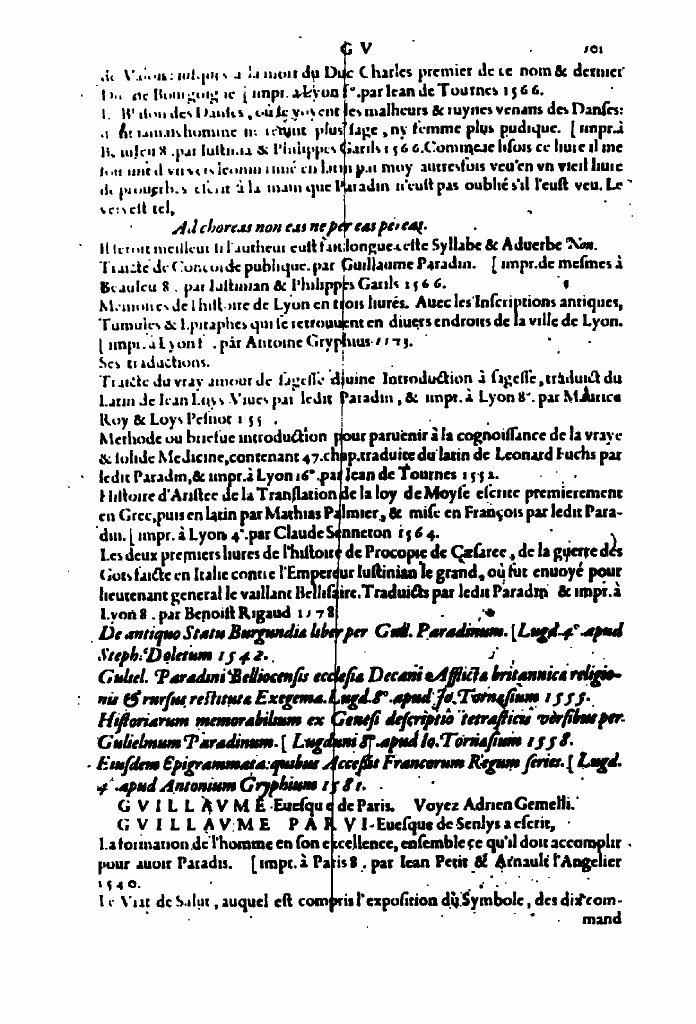 G V 101
du Duc Charles premier de ce nom & dernier
de Bourgoigne [ impr. a Lyon par Iean de Tournes 1566.
des Danses, où se voyent les malheurs & ruynes venans des Danses:
homme plus sage, ny femme plus pudique. [ impr. à
8. par Iustinia & Philippes Garils 1566. Comme ie lisois ce liure il me
en latin par moy autresfois veu en vn vieil liure
à la main que Paradin n'eust pas oublié s'il l'eust veu. Le
vers est tel,
Ad choreas non eas ne per eas pereas.
Il seroit meilleur si l'autheur eust fait longue ceste Syllabe & Aduerbe Non.
Traicté de Concorde publique. par Guillaume Paradin. [ impr. de mesmes à
Beauieu 8. par Iustinian & Philippes Garils 1566.
Memoires de l'histoire de Lyon en trois liures. Auec les Inscriptions antiques,
Tumules & Epitaphes qui se retrouuent en diuers endroits de la ville de Lyon.
[ impr. à Lyon f. par Antoine Gryphius 1573.
Ses traductions.
Traicté du vray amour de sagesse diuine Introduction à sagesse, traduict du
Latin de Iean Loys Viues par ledit Paradin, & impr. à Lyon 8°. par Maurice
Roy & Loys Pesnot 155 .
Methode ou briefue introduction pour paruenir à la cognoissance de la vraye
& solide Medicine, contenant 47. chap. traduite du latin de Leonard Fuchs par
ledit Paradin, & impr. à Lyon 16°. par Iean de Tournes 1552.
Histoire d'Aristee de la Translation de la loy de Moyse escrite premierement
en Grec, puis en latin par Mathias Palmier, & mise en François par ledit Para-
din. [ impr. à Lyon 4°. par Claude Senneton 1564.
Les deux premiers liures de l'histoire de Procopie de Cæsaree, de la guerre des
Gots faicte en Italie contre l'Empereur Iustinian le grand, où fut enuoyé pour
lieutenant general le vaillant Bellisaire. Traduicts par ledit Paradin & impr. à
Lyon 8. par Benoist Rigaud 1578
De antiquo Statu Burgundiæ liber per Gull. Paradinum. [ Lugd. 4°. apud
Steph. Doletum 1542.
Guliel. Paradini Belliocensis ecclesiæ Decani Afflictæ britannicæ religio-
nis & rursus restitutæ Exegema. Lugd. 8°. apud Io. Tornæsium 1555.
Historiarum memorabilium ex Genesi descriptio tetrastictis versibus per.
Gulielmum Paradinum. [ Lugduni 8°. apud Io. Tornæsium 1558.
Eiusdem Epigrammata: quibus Accessit Francorum Regum series. [ Lugd.
4°. apud Antonium Gryphium 1581.
G V I L L A V M E Euesque de Paris. Voyez Adrien Gemelli.
G V I L L A V M E P A R V I Euesque de Senlys a escrit,
La formation de l'homme en son excellence, ensemble ce qu'il doit accomplir
pour auoir Paradis. [ impr. à Paris 8. par Iean Petit & Arnault l'Angelier
1540.
Le Viat de Salut, auquel est compris l'exposition du Symbole, des dix com-
mand